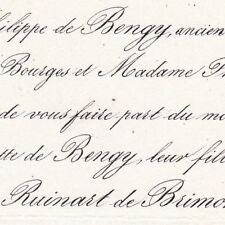 ilippe de Bengy, ancien
Bourges et Madame P
de vous faire part du m
tte de Bengy, leur fil
Ruinart de Brimo